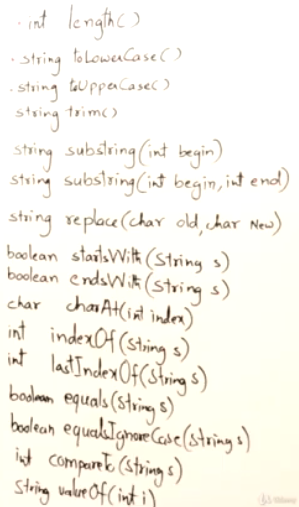 . int length()
. string toLowerCase()
. string toUpperCase()
string trim()
string substring(int begin)
string substring(int begin, int end)
string replace(char old, char New)
boolean startsWith(String s)
boolean endsWith(String s)
char charAt(int index)
int indexOf(String s)
int lastIndexOf(String s)
boolean equals(String s)
boolean equalsIgnoreCase(String s)
int compareTo(String s)
String valueOf(int i)
Udemy